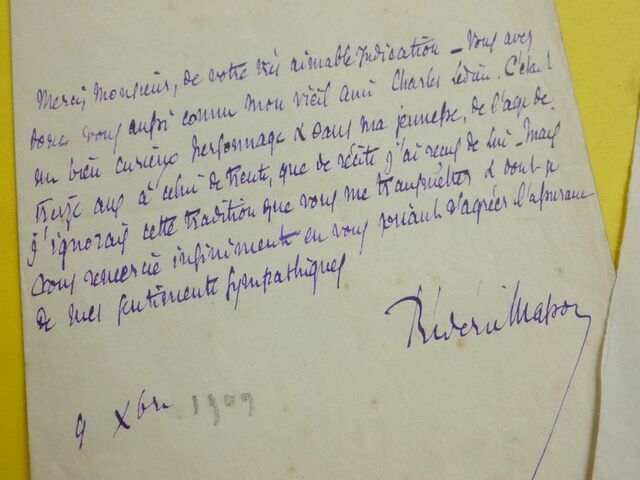 Merci, Monsieur, de votre très aimable indication – Vous avez
donc vous aussi connu mon vieil ami Charles Ledru. C'était
un bien curieux personnage & dans ma jeunesse, de l'âge de
treize ans à celui de trente, que de récits j'ai reçus de lui – Mais
j'ignorais cette tradition que vous me transmettez & dont je
vous remercie infiniment en vous priant d'agréer l'assurance
de mes sentiments sympathiques
Frédéric Masson
9 Xbre 1909